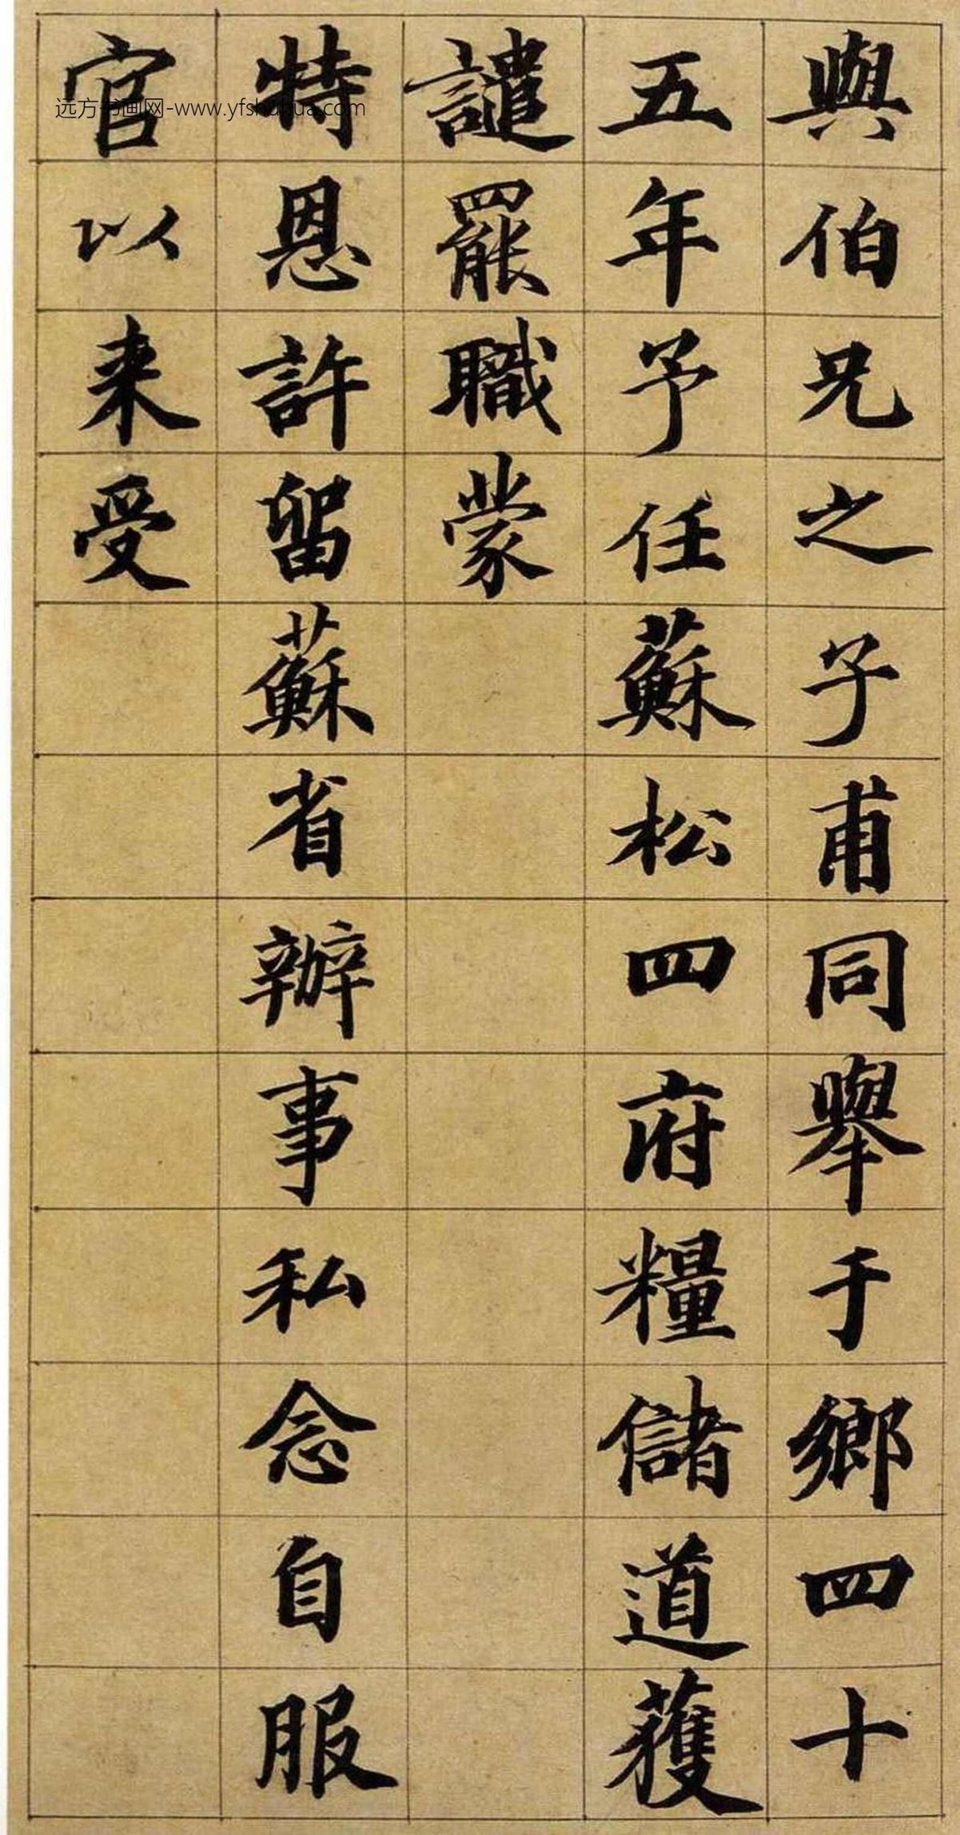 與伯兄之子甫同舉于鄉四十
五年予任蘇松四府糧儲道蒦
譴罷職蒙
特恩許留蘇省辦事私念自服
官以来受
远方书画网-www.yfshuhua.com